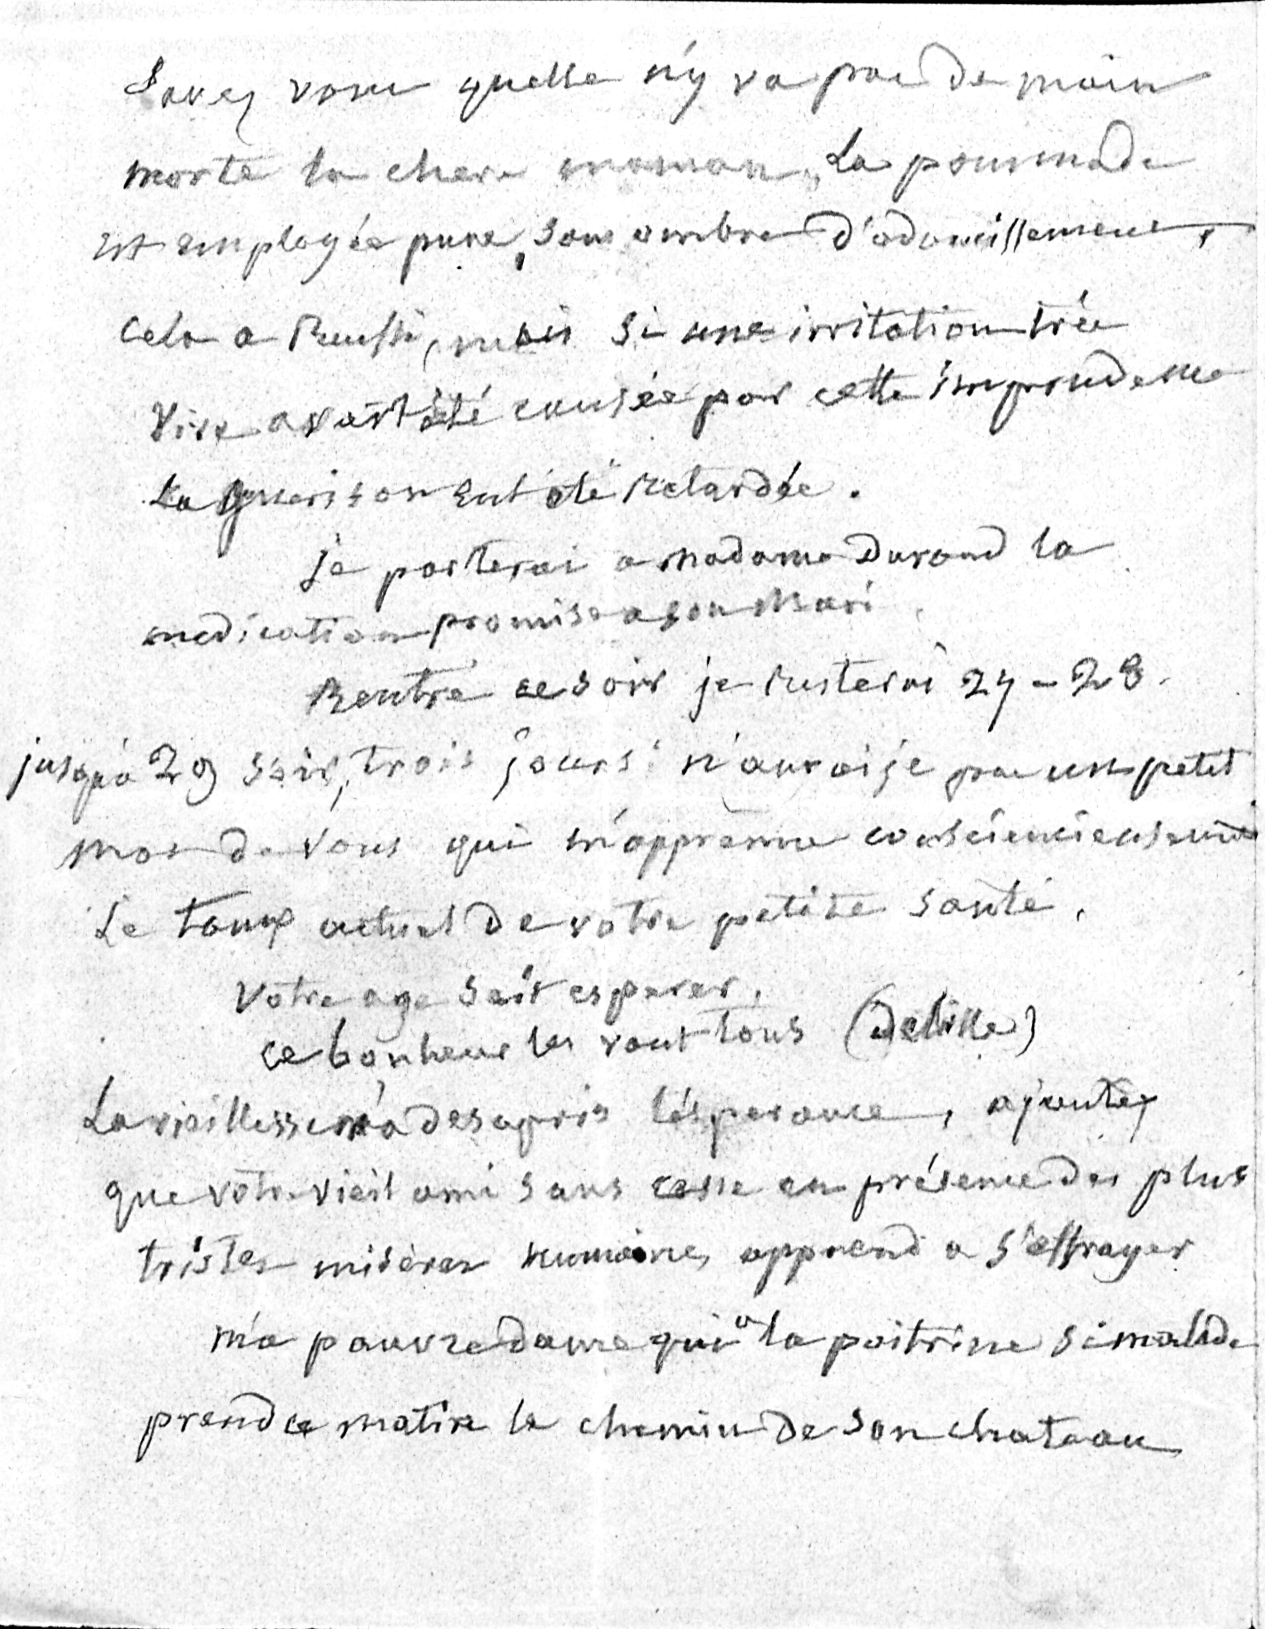 Savez vous quelle n'y va pas de main
morte la chere maman. La pommade
est employée pure, sans ombre d'adoucissement,
cela a Reussi, mais si une irritation très
Vive avait été causée par cette imprudence
La guerison eut été Retardée.
je porterai a Madame Durand la
medication promise a son Mari.
Rentré ce soir je resterai 27 - 28.
jusqu'a 29 soir, trois jours. n'aurai je pas un petit
mot de vous qui m'apprenne consciencieusement
Le taux actuel de votre petite santé.
Votre age sait esperer,
ce bonheur les vaut tous (Delille)
La vieillesse m'a desapris l'ésperance, ajoutez
que votre vieil ami sans cesse en présence des plus
tristes misères humaines apprend a s'effrayer
m'a pauvre dame qui a la poitrine si malade
prend ce matin le chemin de son chateau